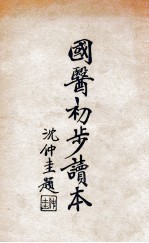 國醫初步讀本
沈仲圭題